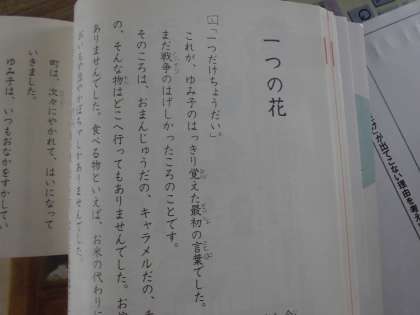 一つの花
「一つだけちょうだい。」
これが、ゆみ子のはっきり覚えた最初の言葉でした。
まだ戦争のはげしかったころのことです。
そのころは、おまんじゅうだの、キャラメルだの、チ
の、そんな物はどこへ行ってもありませんでした。お
ありませんでした。食べる物といえば、お米の代わりに
おいもや豆やかぼちゃしかありませんでした。
町は、次々にやかれて、はいになって
いきました。
ゆみ子は、いつもおなかをすかしてい
が出てこない理由を考え